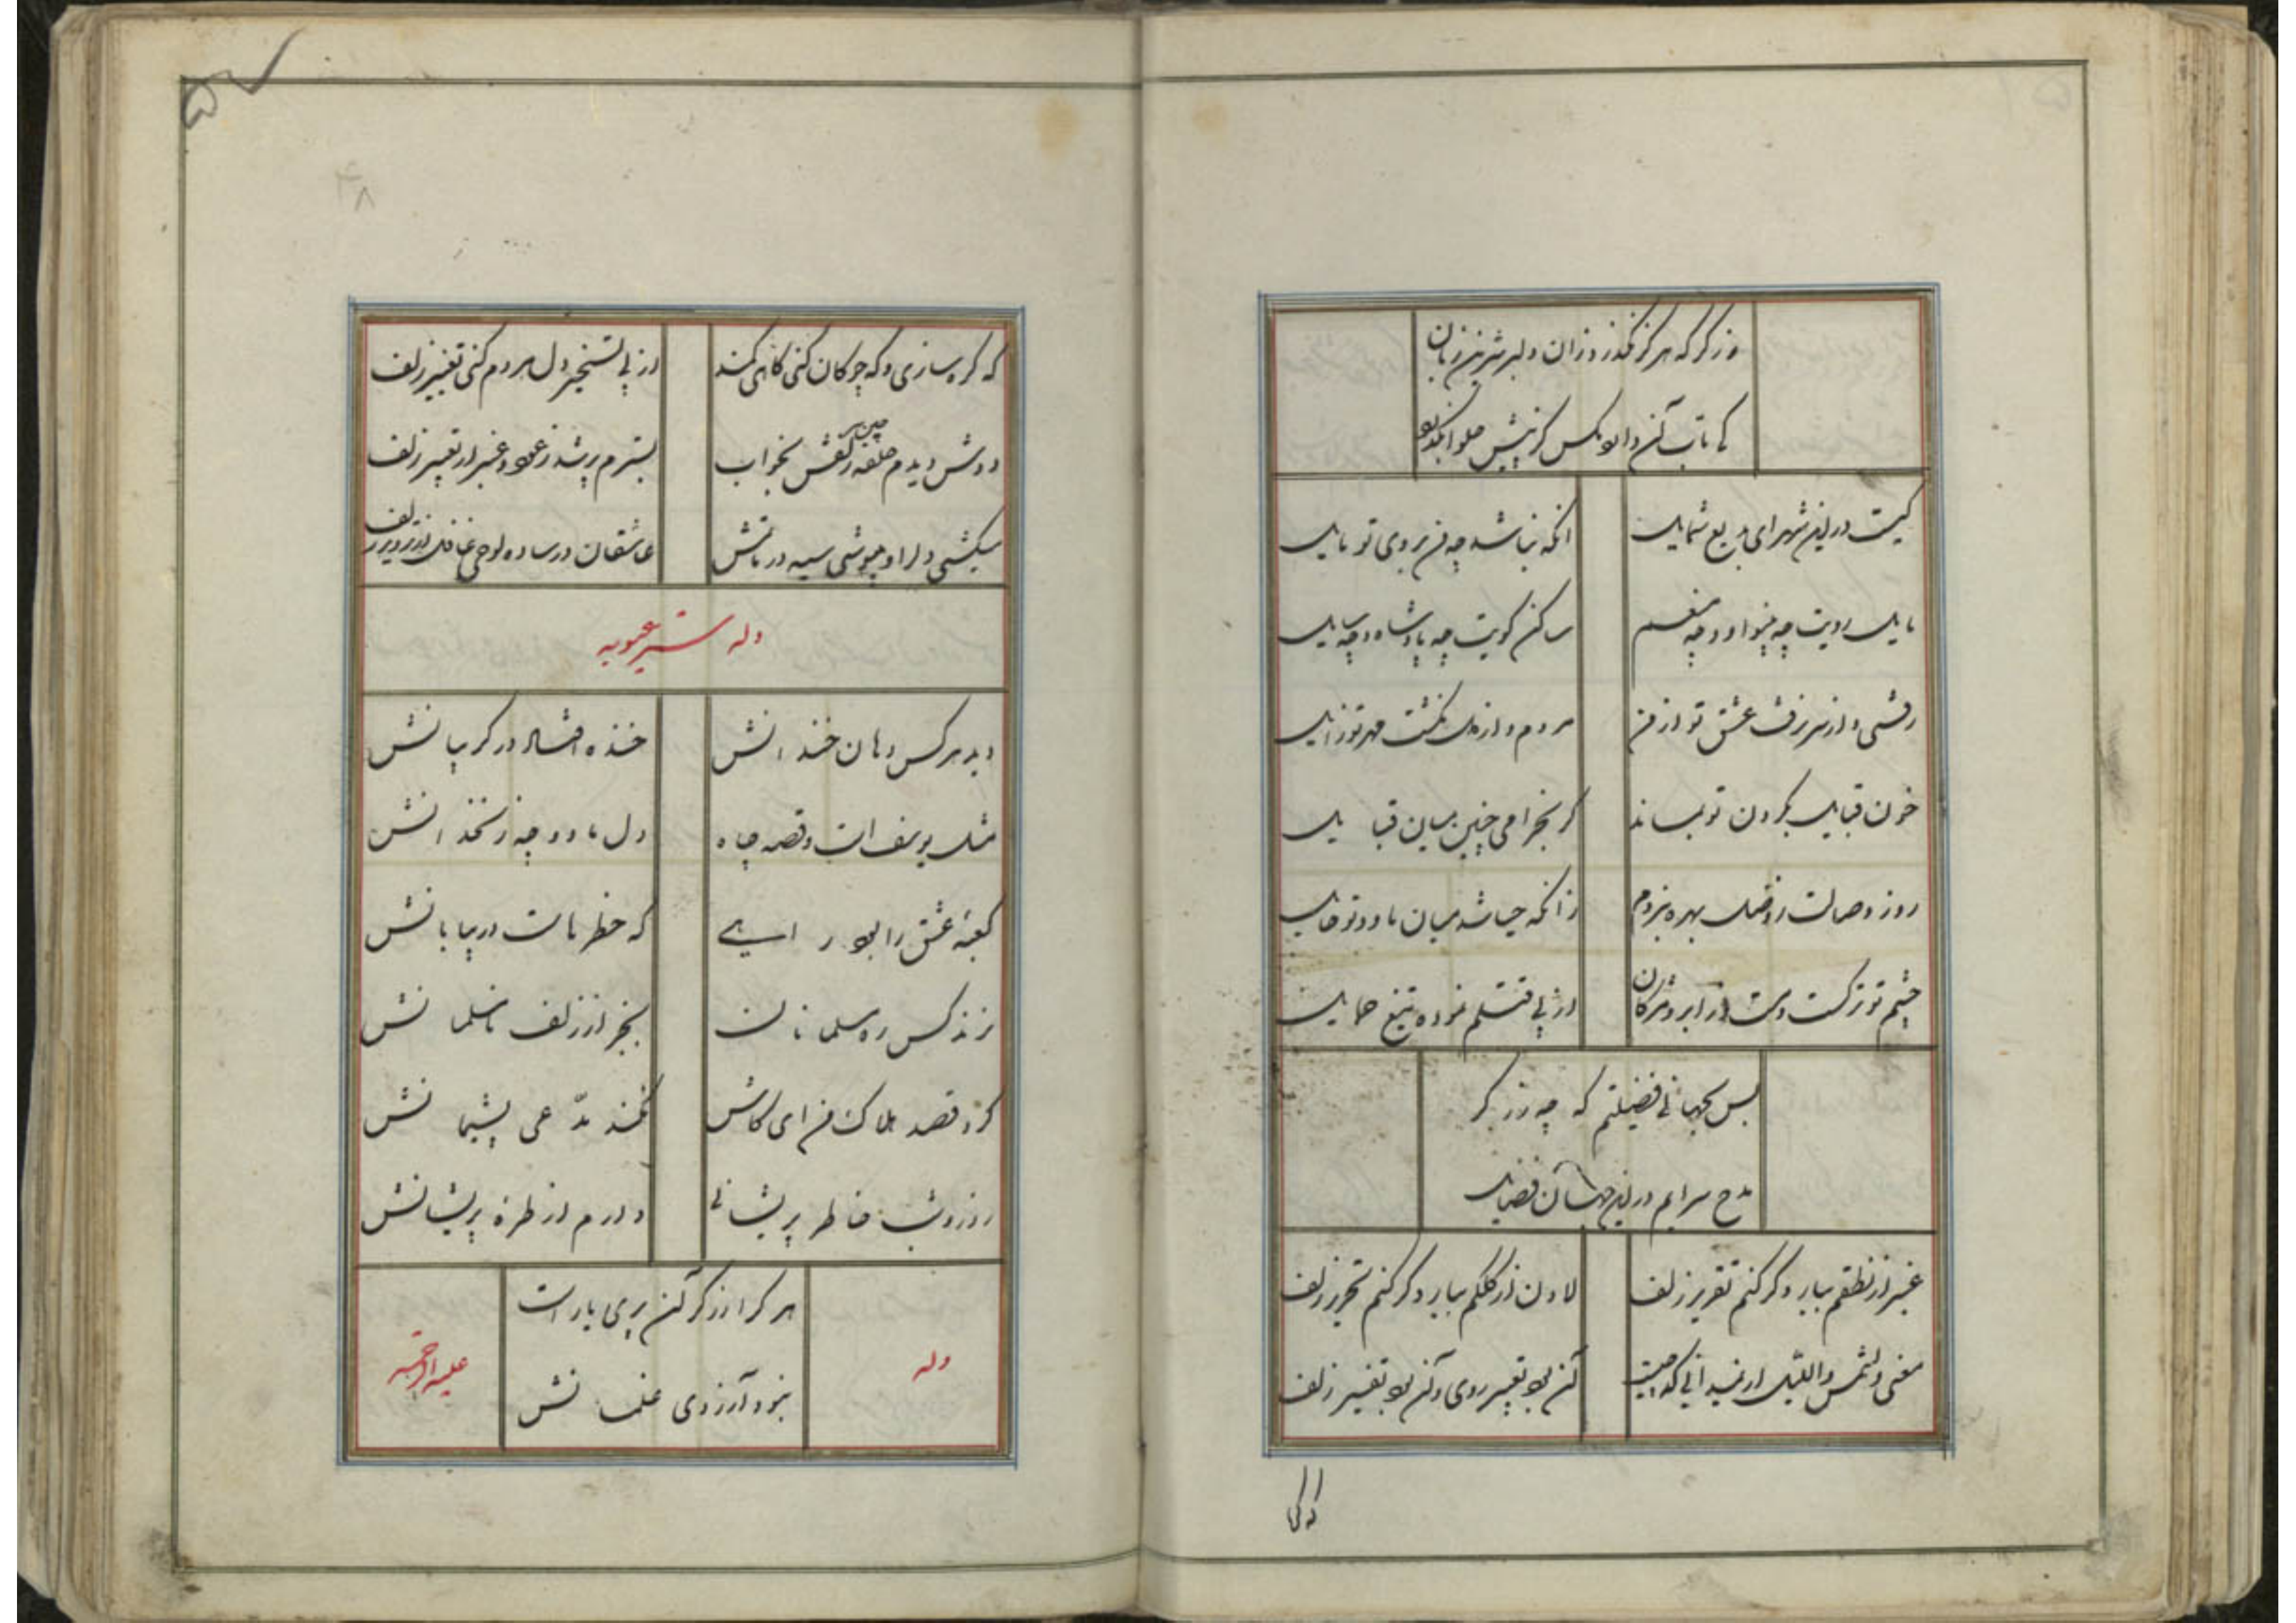 وزکر که هرکز نکذرد زان دلبر شیرین زبان
کی تاب آن دارد مکس کز پیش حلوا بکذرد
کیست درین شهر ای بدیع شمایل
انکه نباشد چه من بروی تو مایل
مایل رویت چه بینوا و چه منعم
ساکن کویت چه پادشاه و چه سایل
رفتی و از سر نرفت عشق تو از من
مردم و از دل نکشت مهر تو زایل
خون قبایل بکردن تو بماند
کر بخرامی چنین میان قبایل
روز وصالت بهره نبردم
زانکه حیا شد میان ما و تو حایل
چشم تو ترکست و مست از ابرو و مژکان
از پی قتلم نموده تیغ حمایل
بس بجهانی فضیلتم که چه وزکر
مدح سرایم درین جهان فضایل
عنبر از نطقم ببارد کر کنم تقریر زلف
لادن از کلکم ببارد کر کنم تحریر زلف
معنی والشمس واللیل ار نمیدانی که چیست
آن بود تفسیر روی و آن بود تفسیر زلف
که کره
که کره سازی و که چوکان کنی کاهی کمند
از پی تسخیر دل هر دم کنی تغییر زلف
دوش دیدم حلقه چین زلفش بخواب
بسترم پر شد ز عود و عنبر از تعبیر زلف
میکشی دلرا و میپوشی سیه در ماتمش
عاشقان در ساده لوحی غافل از تزویر زلف
وله ستر عیوبه
دید هر کس دهان خندانش
خنده افتاد در کریبانش
مثل یوسف است و قصه چاه
دل ما و چه زنخدانش
کعبه عشق را بود راهی
که خطرهاست در بیابانش
نزند کس ره مسلمانان
بجز از زلف نامسلمانش
کرد قصد هلاک من ای کاش
نکند مدعی پشیمانش
روز و شب خاطر پریشانی
دارم از طره پریشانش
هر کرا وزکر آن پری یار است
نبود آرزوی غلمانش
وله
علیه الرحمه